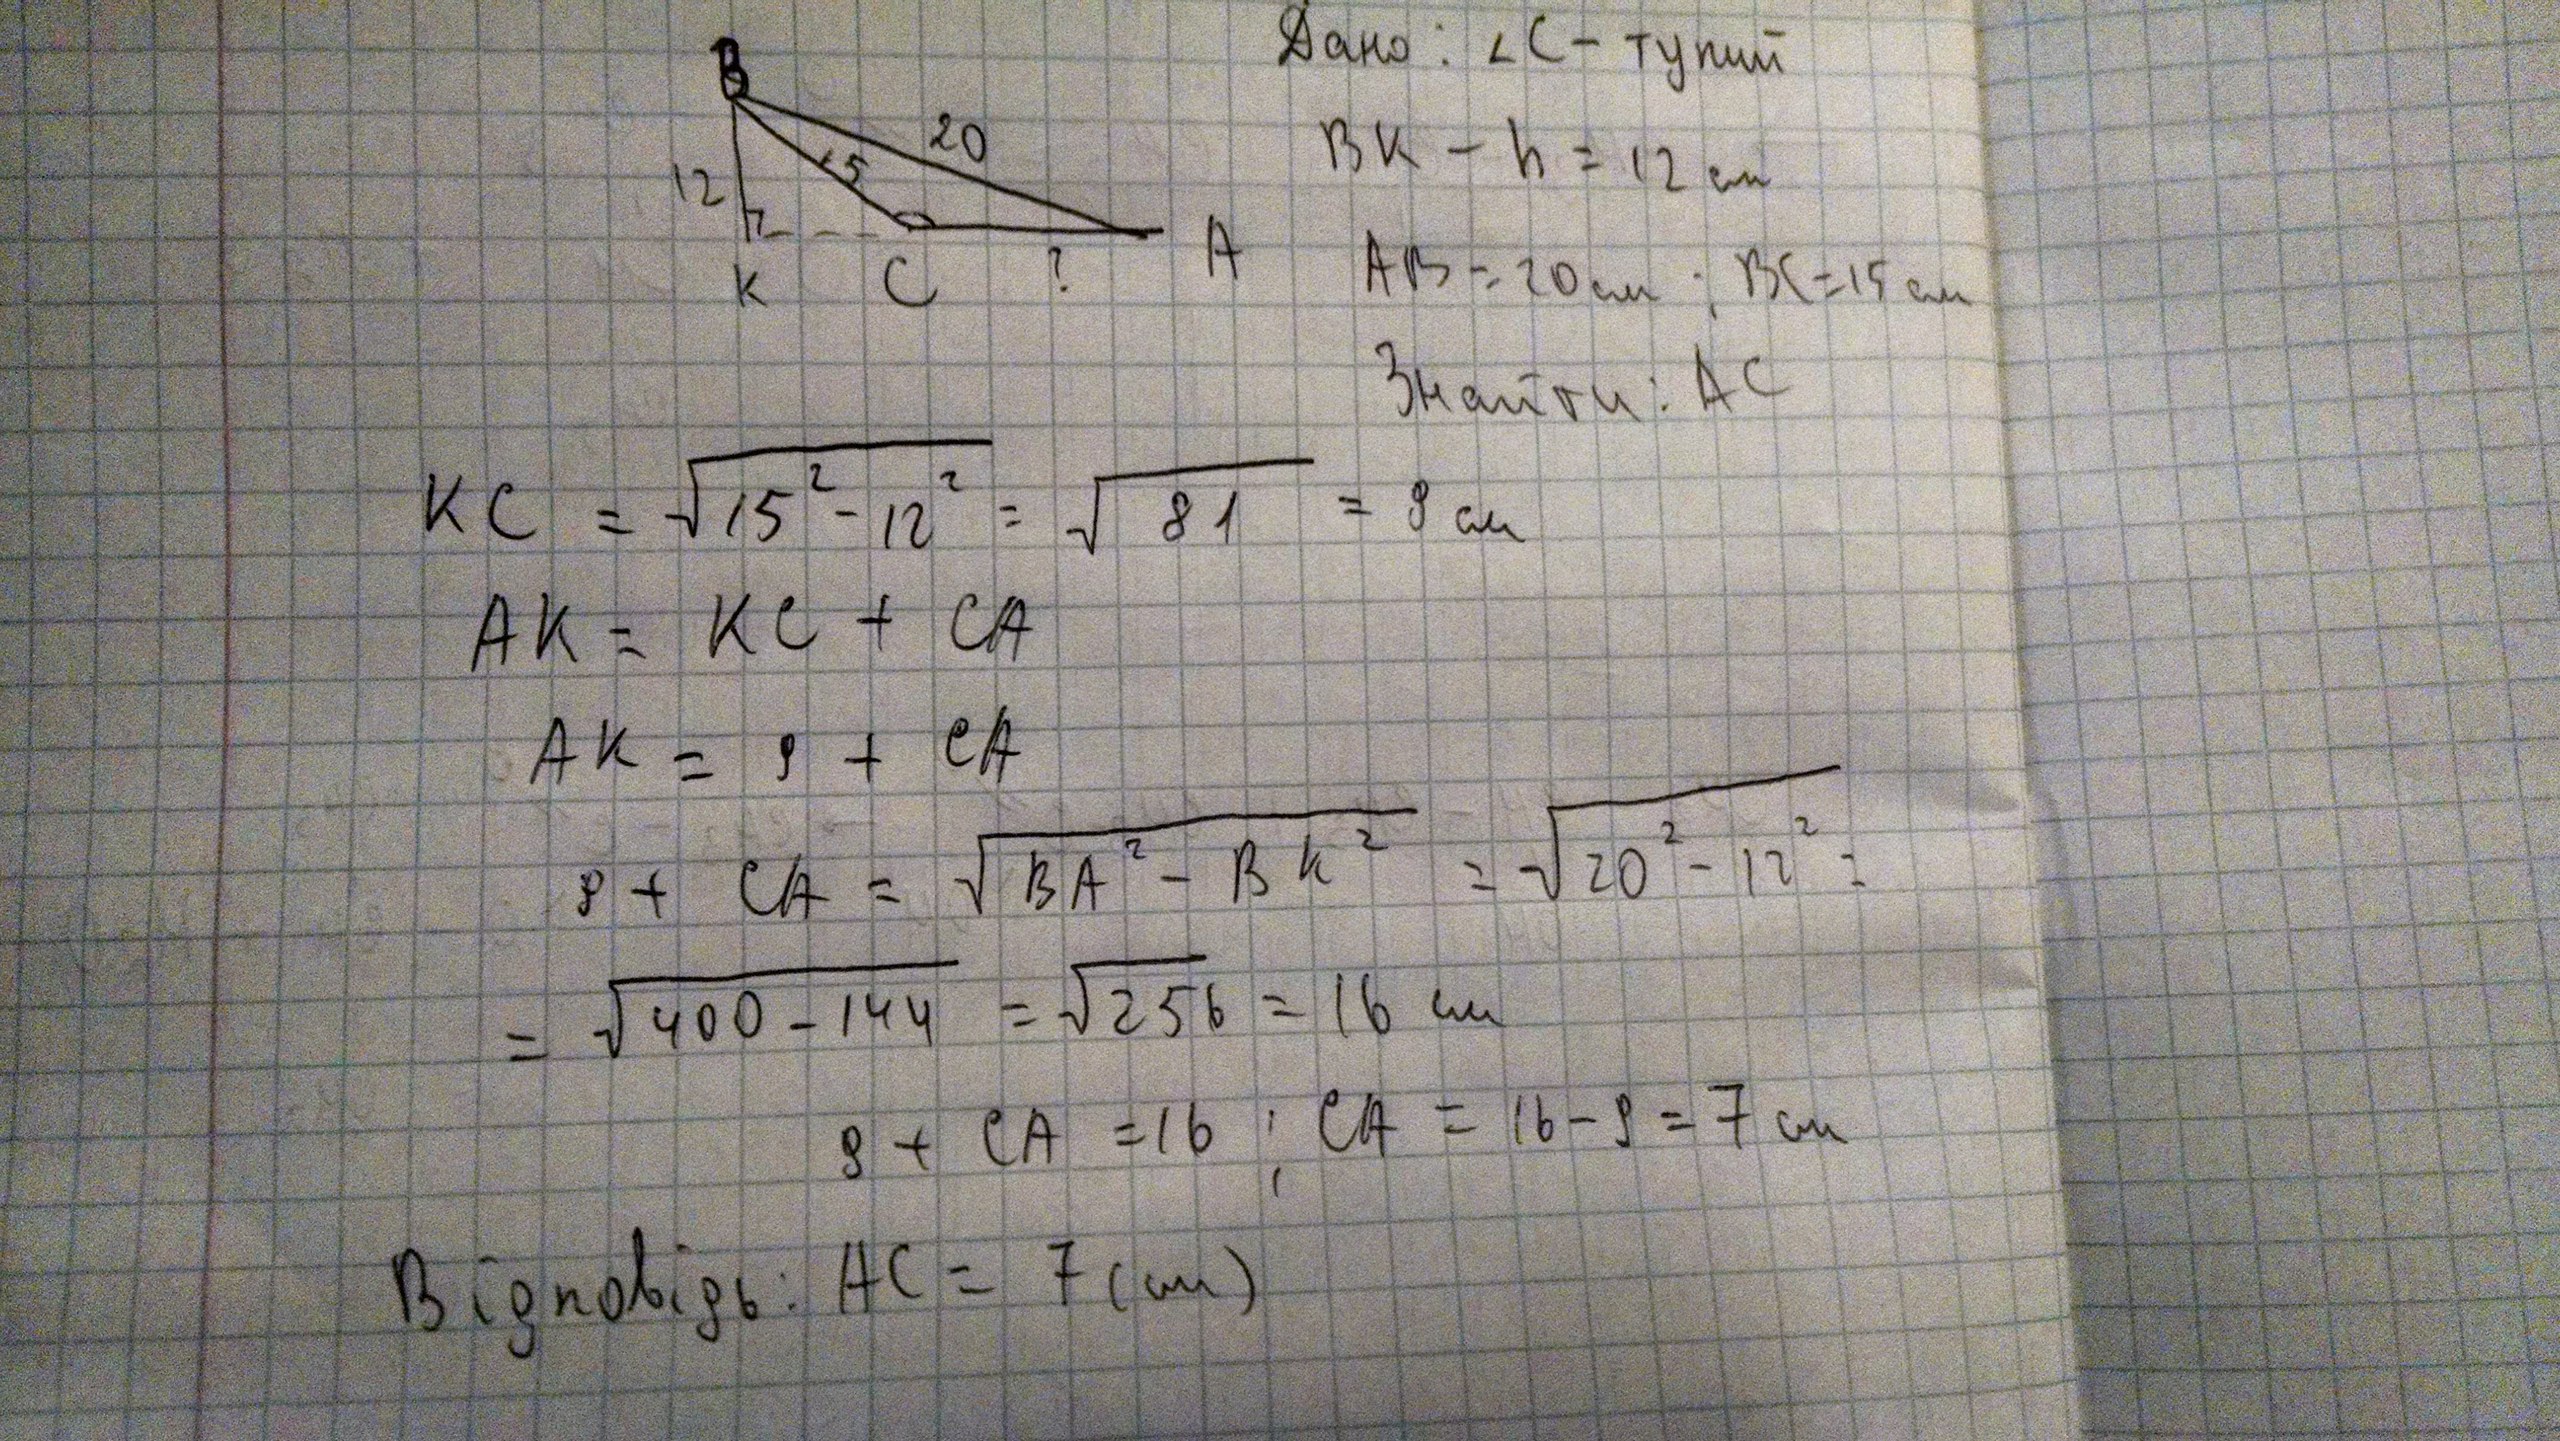 B
20
15
12
K C ? A
Дано: ∠C - тупий
BK - h = 12 см
AB = 20 см ; BC = 15 см
Знайти: AC
KC = √15² - 12² = √81 = 9 см
AK = KC + CA
AK = 9 + CA
9 + CA = √BA² - BK² = √20² - 12² =
= √400 - 144 = √256 = 16 см
9 + CA = 16 ; CA = 16 - 9 = 7 см
Відповідь: AC = 7 (см)